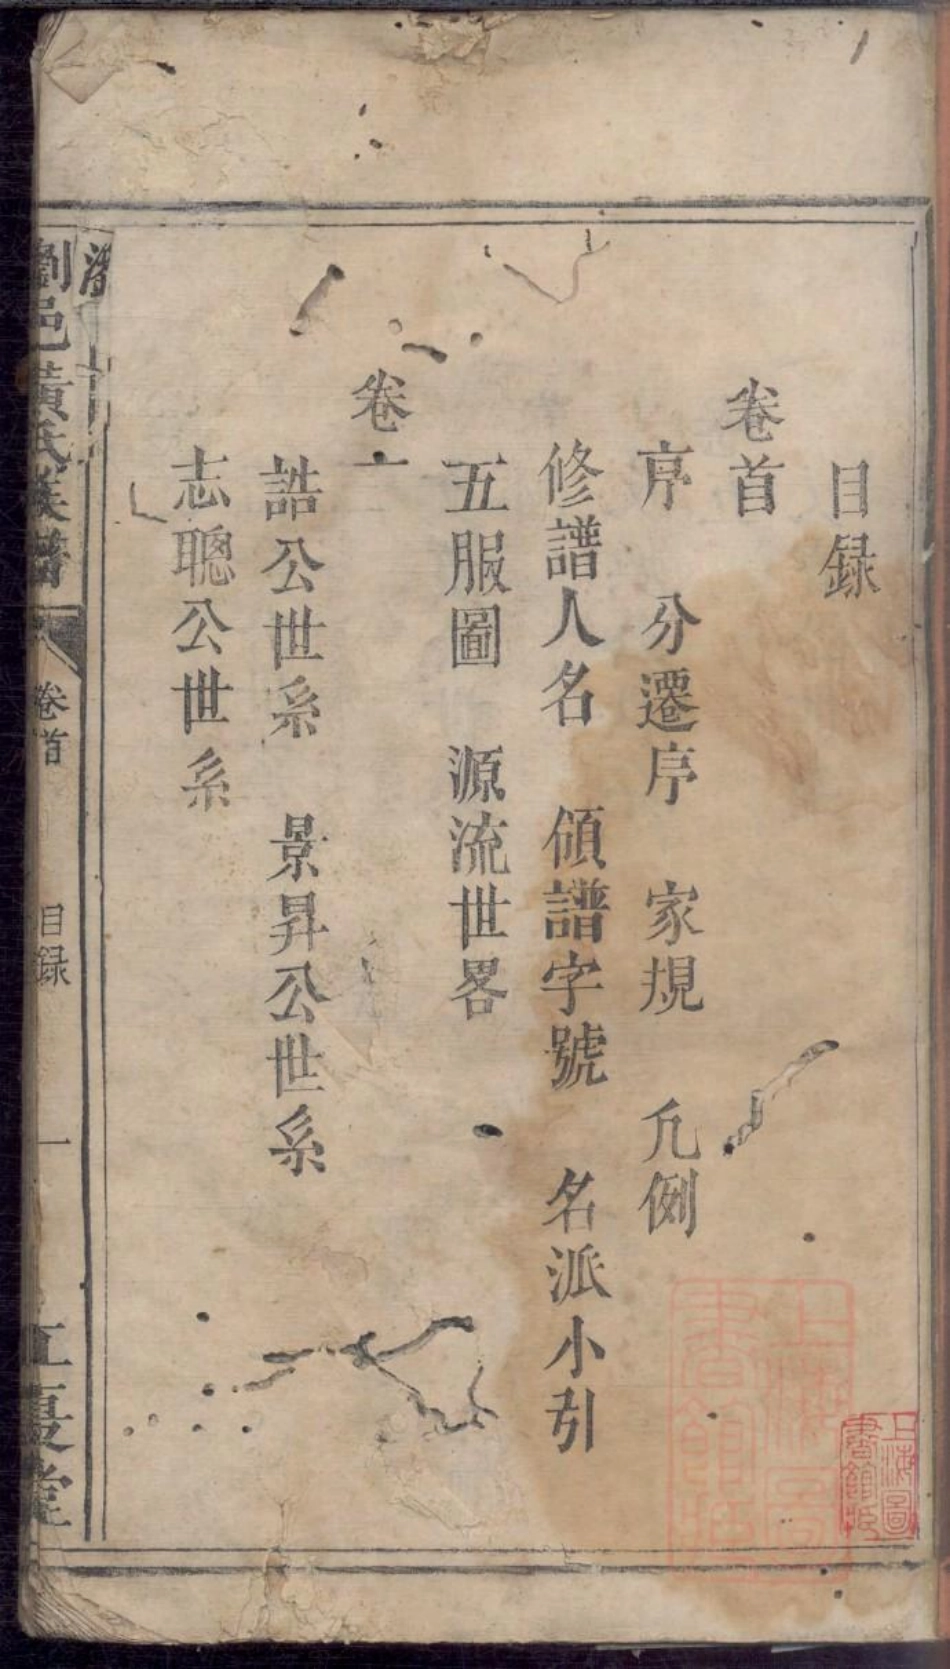 目録
卷首
序　分遷序　家規　凡例
修譜人名　領譜字號　名派小引
五服圖　源流世畧
卷一
誥公世系　景昇公世系
志聰公世系
劉邑黃氏族譜　卷首　目録　一
上海圖書館藏